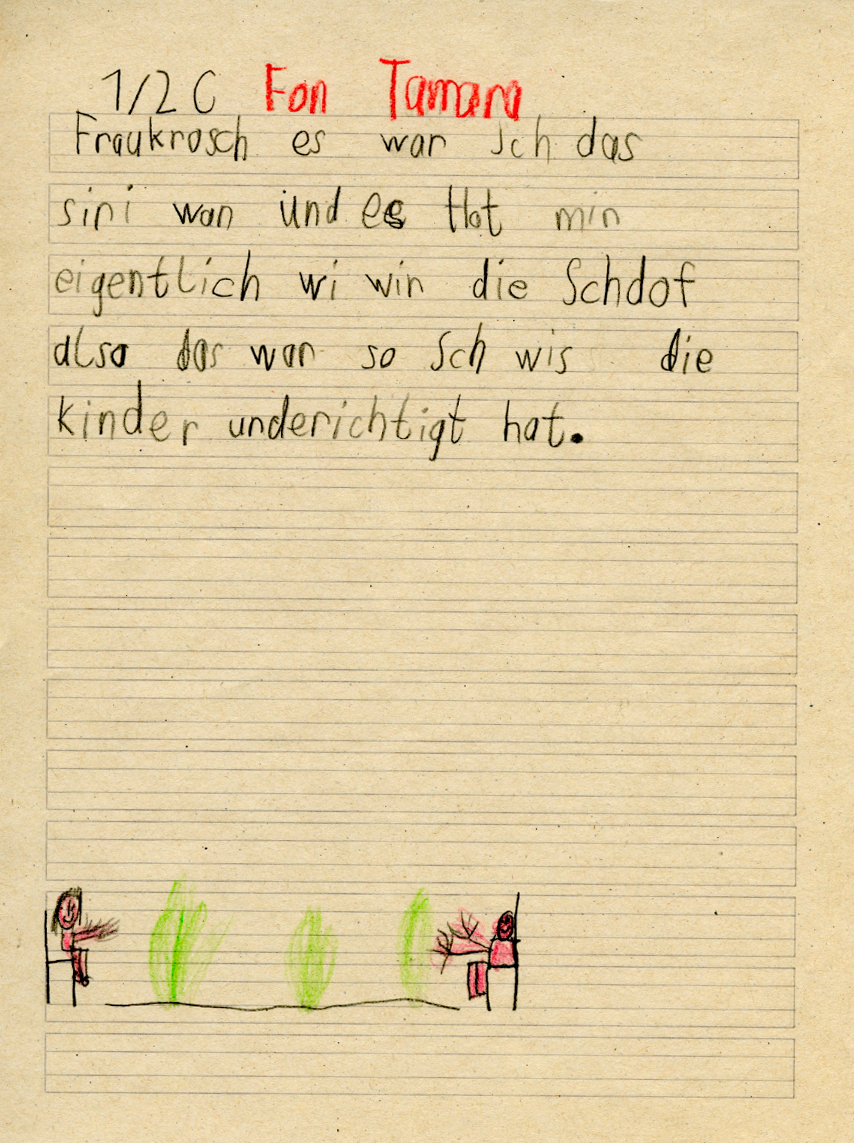 1/2 C Fon Tamara
Fraukrosch es war Sch das
sini wan und es Hat min
eigentlich wi win die Schdof
also das war so Sch wis die
kinder underichtigt hat.